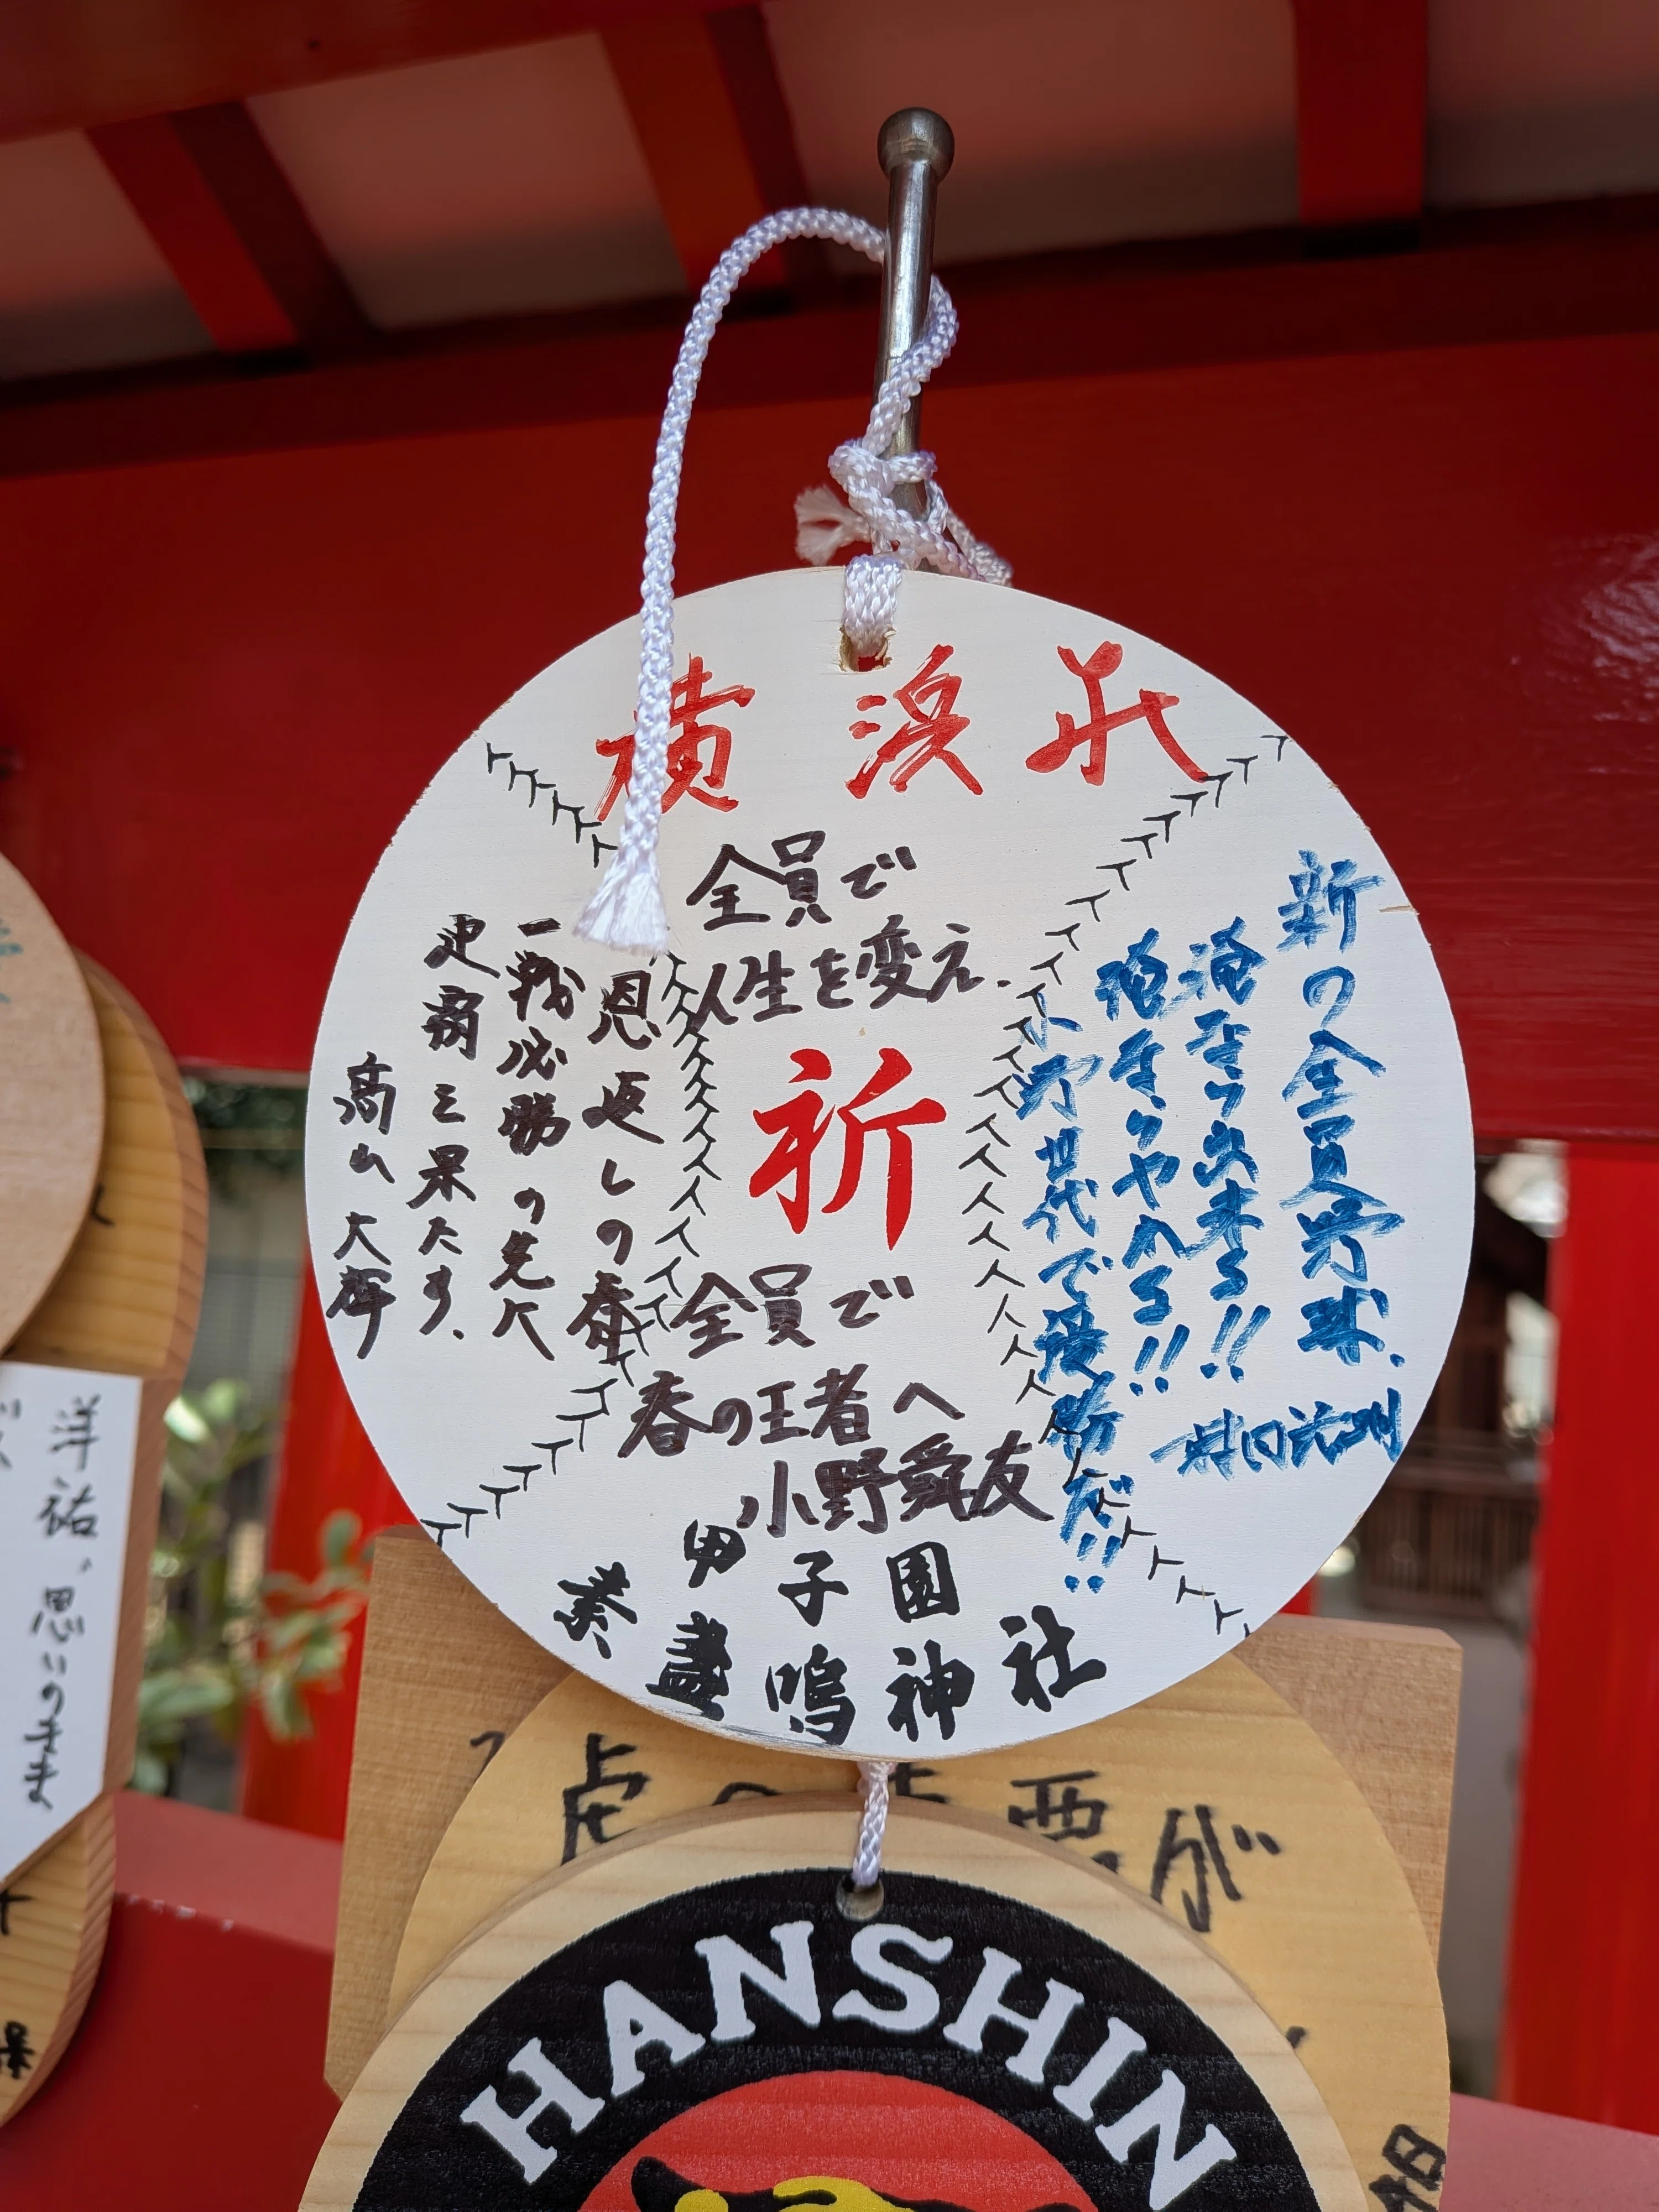 横浜
全員で
人生を変え.
祈
全員で
春の王者へ
小野舜友
新の全員野球.
俺なら出来る!!
俺ならやれる!!
小野世代で優勝だ!!
恩返しの春
一戦必勝の先に
史上を果たす.
甲子園
素盞嗚神社
洋祐、思いのまま
虎の
が
HANSHIN